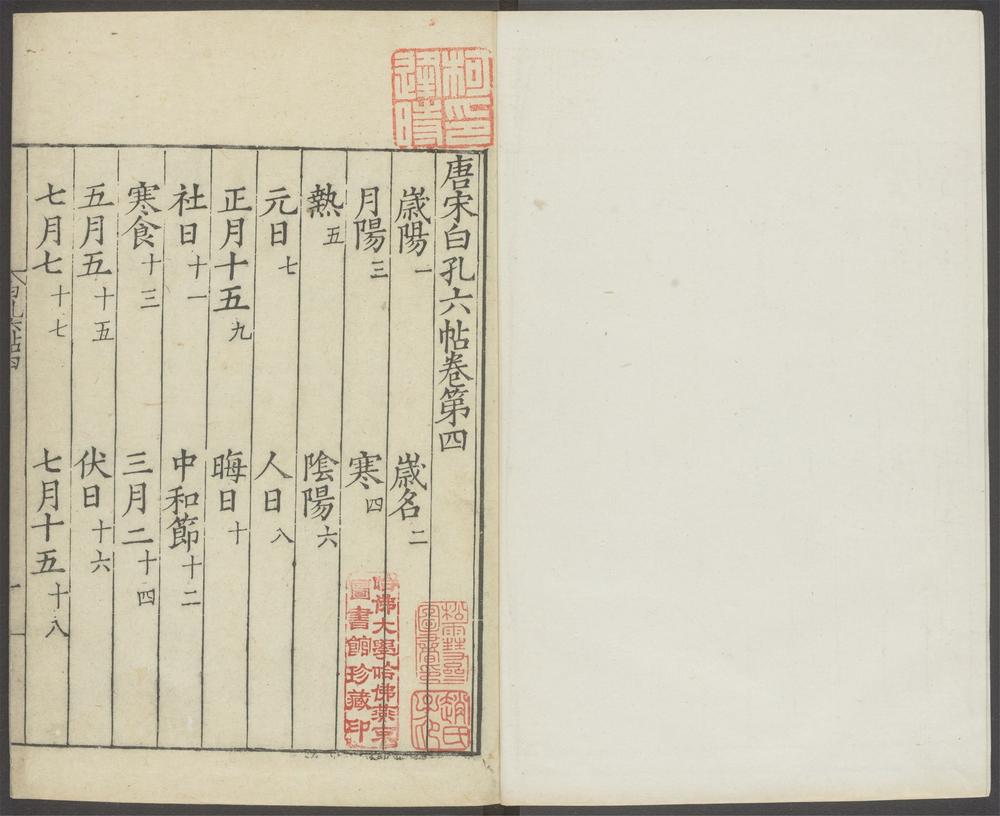 唐宋白孔六帖卷第四
歲陽一 歲名二
月陽三 寒四
熱五 陰陽六
元日七 人日八
正月十五九 晦日十
社日十一 中和節十二
寒食十三 三月二十四
五月五十五 伏日十六
七月七十七 七月十五十八
白孔六帖四
一
哈佛大學哈佛燕京
圖書館珍藏印